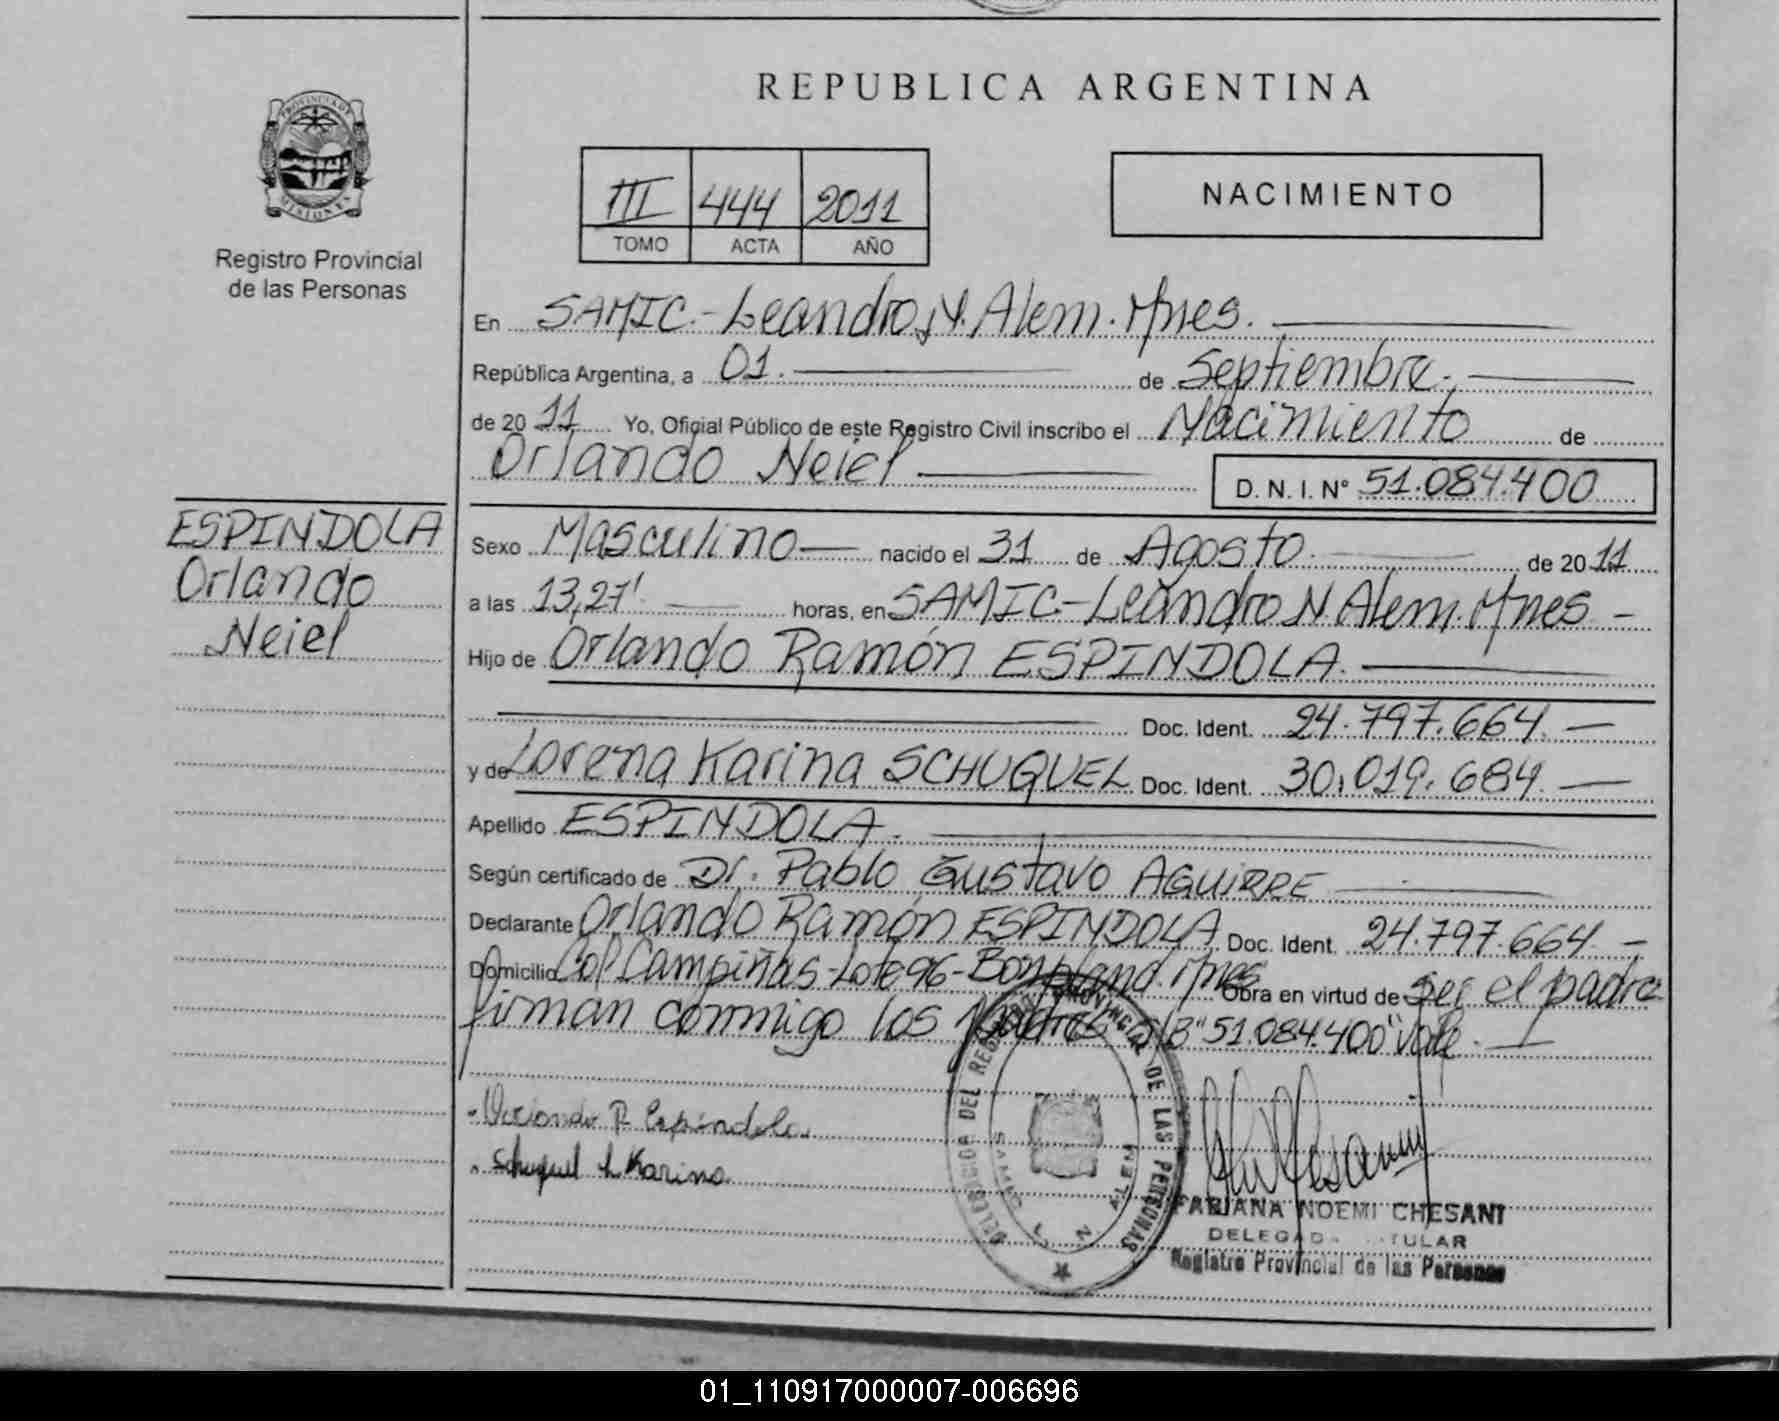 REPUBLICA ARGENTINA
PROVINCIA DE
MISIONES
Registro Provincial
de las Personas
III 444 2011
TOMO ACTA AÑO
NACIMIENTO
En SAMIC.-Leandro N. Alem. Mnes.
República Argentina, a 01. de Septiembre.
de 20 11 Yo, Oficial Público de este Registro Civil inscribo el Nacimiento de
Orlando Neiel D. N. I. N° 51.084.400
ESPINDOLA
Orlando
Neiel
Sexo Masculino nacido el 31 de Agosto. de 20 11
a las 13,27'. horas, en SAMIC.-Leandro N. Alem. Mnes -
Hijo de Orlando Ramón ESPINDOLA.
Doc. Ident. 24.797.664. -
y de Lorena Karina SCHUQUEL Doc. Ident. 30.019.684. -
Apellido ESPINDOLA.
Según certificado de Dr. Pablo Gustavo AGUIRRE
Declarante Orlando Ramón ESPINDOLA Doc. Ident. 24.797.664 -
Domicilio Col. Campiñas-Lote 96-Bonpland. Mnes Obra en virtud de Ser el padre
firman conmigo los Padres S/B "51.084.400" vale.
R. Espindola
Schuquel L Karina
DELEGACION DEL REGISTRO PROVINCIAL DE LAS PERSONAS
SAMIC L. N. ALEM
FABIANA NOEMI CHESANI
Registro Provincial de las Personas
01_110917000007-006696